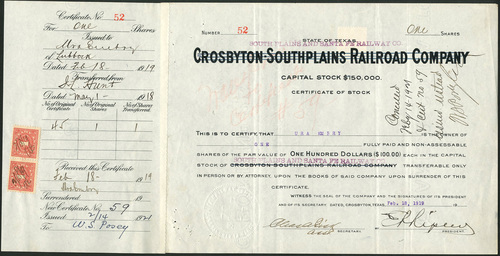 Certificate No. 52
For One Shares
Issued to
of Lubbock
Dated Feb 18 1919
Transferred from
Hunt
Dated May 1 - 1918
No. Original Certificate
No. Original Shares
No. of Shares Transferred
45 1
Received this Certificate
Feb 18 - 1919
Surrendered 19
New Certificate No. 59
Issued 2/14 1921
To W.S. Posey
NUMBER 52 One SHARES
STATE OF TEXAS
SOUTH PLAINS AND SANTA FE RAILWAY CO.
CROSBYTON-SOUTHPLAINS RAILROAD COMPANY
CAPITAL STOCK $150,000.
CERTIFICATE OF STOCK
THIS IS TO CERTIFY, THAT IS THE OWNER OF
ONE FULLY PAID AND NON-ASSESSABLE
SHARES OF THE PAR VALUE OF ONE HUNDRED DOLLARS ($100.00) EACH IN THE CAPITAL
SOUTH PLAINS AND SANTA FE RAILWAY COMPANY
STOCK OF CROSBYTON-SOUTHPLAINS RAILROAD COMPANY TRANSFERABLE ONLY
IN PERSON OR BY ATTORNEY UPON THE BOOKS OF SAID COMPANY UPON SURRENDER OF THIS
CERTIFICATE.
WITNESS THE SEAL OF THE COMPANY AND THE SIGNATURES OF ITS PRESIDENT
AND OF ITS SECRETARY DATES, CROSBYTON, TEXAS, Feb. 18, 1919 19
SECRETARY.
PRESIDENT.
Canceled
Feby 14 - 1921
& Cert no 59
issued instead